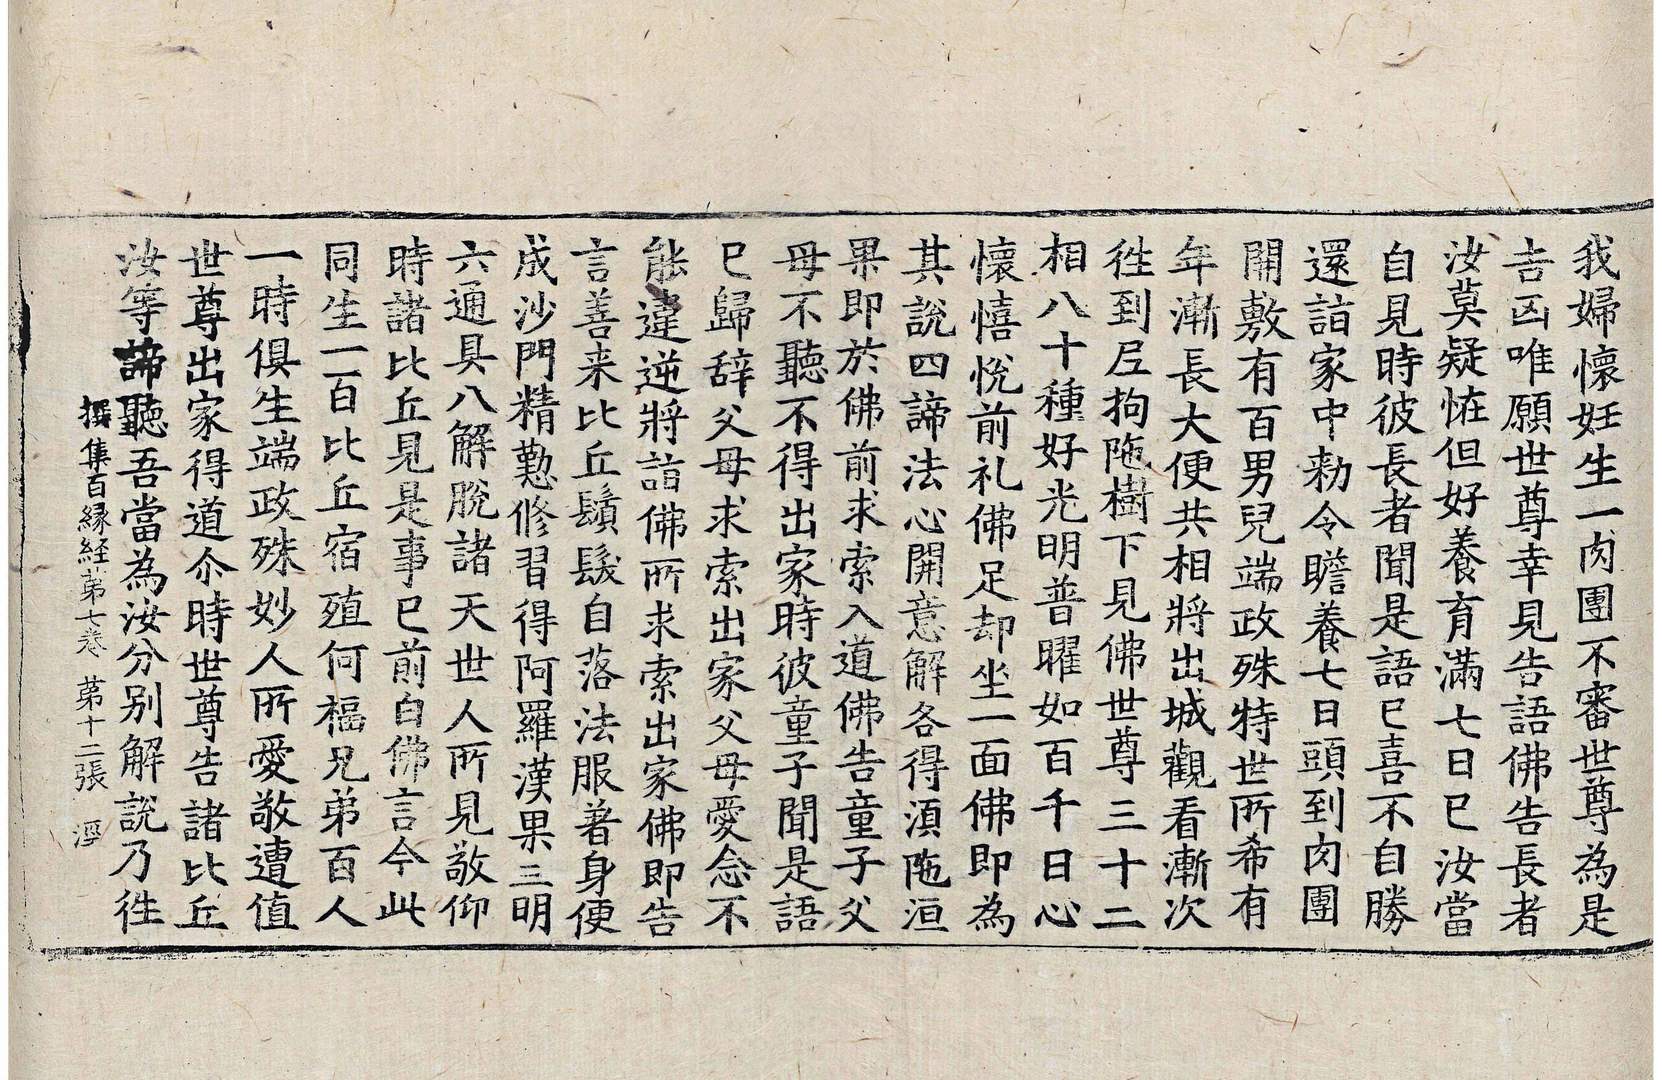 我婦懷妊生一肉團不審世尊為是
吉凶唯願世尊幸見告語佛告長者
汝莫疑恠但好養育滿七日已汝當
自見時彼長者聞是語已喜不自勝
還詣家中勑令瞻養七日頭到肉團
開敷有百男兒端政殊特世所希有
年漸長大便共相將出城觀看漸次
徃到尼拘陁樹下見佛世尊三十二
相八十種好光明普曜如百千日心
懷憘悅前礼佛足却坐一面佛即為
其說四諦法心開意解各得湏陁洹
果即於佛前求索入道佛告童子父
母不聽不得出家時彼童子聞是語
已歸辞父母求索出家父母愛念不
能違逆將詣佛所求索出家佛即告
言善来比丘鬚髮自落法服著身便
成沙門精懃修習得阿羅漢果三明
六通具八解脫諸天世人所見敬仰
時諸比丘見是事已前白佛言今此
同生一百比丘宿殖何福兄弟百人
一時俱生端政殊妙人所愛敬遭值
世尊出家得道尒時世尊告諸比丘
汝等諦聽吾當為汝分別解說乃徃
撰集百緣経第七卷 第十二張 𣵀